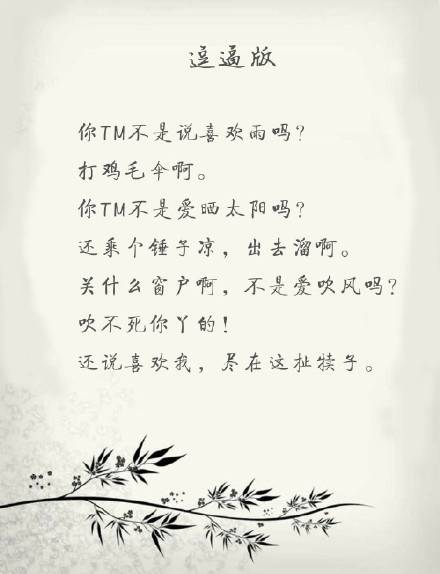 逗逼版
你TM不是说喜欢雨吗?
打鸡毛伞啊。
你TM不是爱晒太阳吗?
还乘个锤子凉，出去溜啊。
关什么窗户啊，不是爱吹风吗?
吹不死你丫的!
还说喜欢我，尽在这扯犊子。